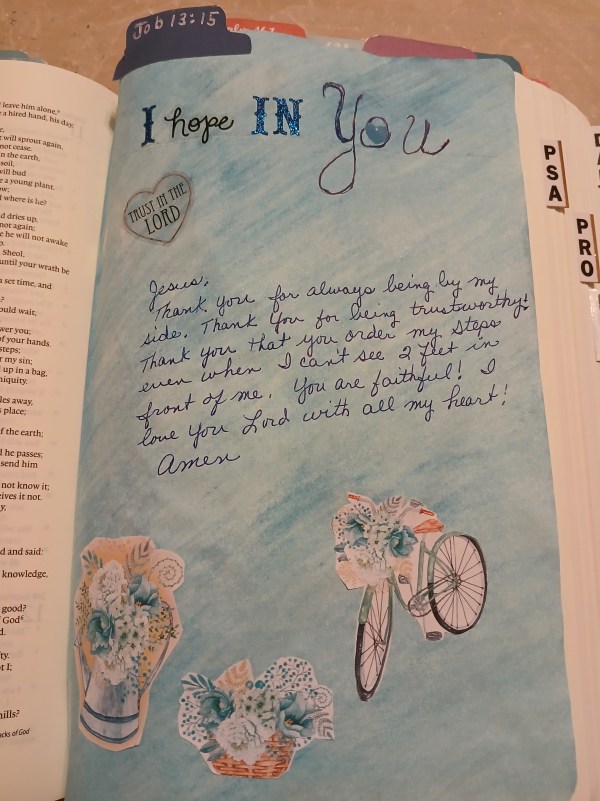 Job 13:15
I hope IN You
TRUST IN THE
LORD
Jesus,
Thank you for always being by my
side. Thank you for being trustworthy!
Thank you that you order my steps
even when I can't see 2 feet in
front of me. You are faithful! I
love you Lord with all my heart!
Amen
PSA
PRO
leave him alone,"
a hired hand, his day.
will sprout again,
not cease.
in the earth,
soil,
will bud
e a young plant.
where is he?
d dries up,
not again;
he will not awake
Sheol,
until your wrath be
a set time, and
ould wait,
wer you;
of your hands.
steps;
r my sin;
up in a bag,
niquity.
les away,
place;
f the earth;
d he passes;
send him
not know it;
ives it not.
y,
d and said:
knowledge,
good?
God
d.
ty.
t I;
hills?
cks of God